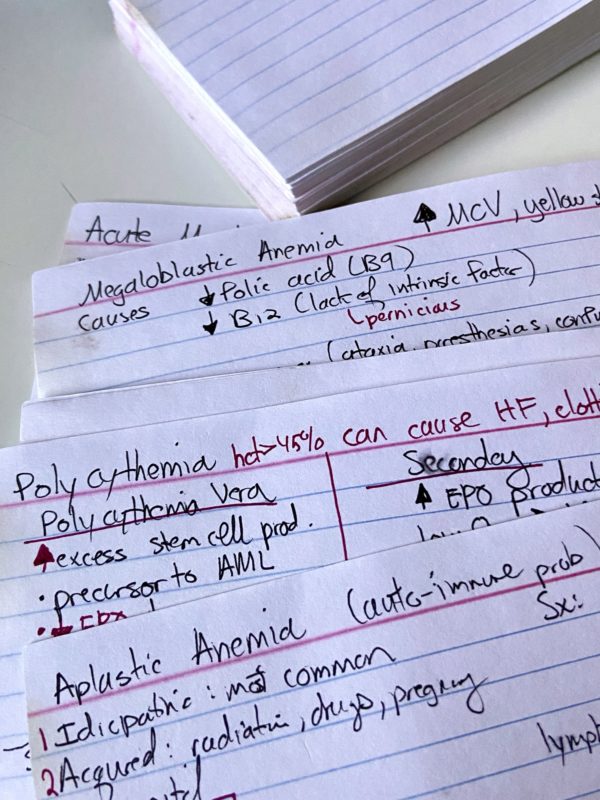 Acute
↑ MCV, yellow
Megaloblastic Anemia
Causes ↓ folic acid (B9)
↓ B12 (lack of intrinsic factor)
pernicious
(ataxia, paresthesias, confu
Polycythemia hct>45% can cause HF, clott
Polycythemia Vera
Seconday
↑ excess stem cell prod.
↑ EPO product
• precursor to AML
Aplastic Anemia (auto-immune prob)
Sx:
1 Idiopathic: most common
2 Acquired: radiation, drugs, pregnancy
lymph